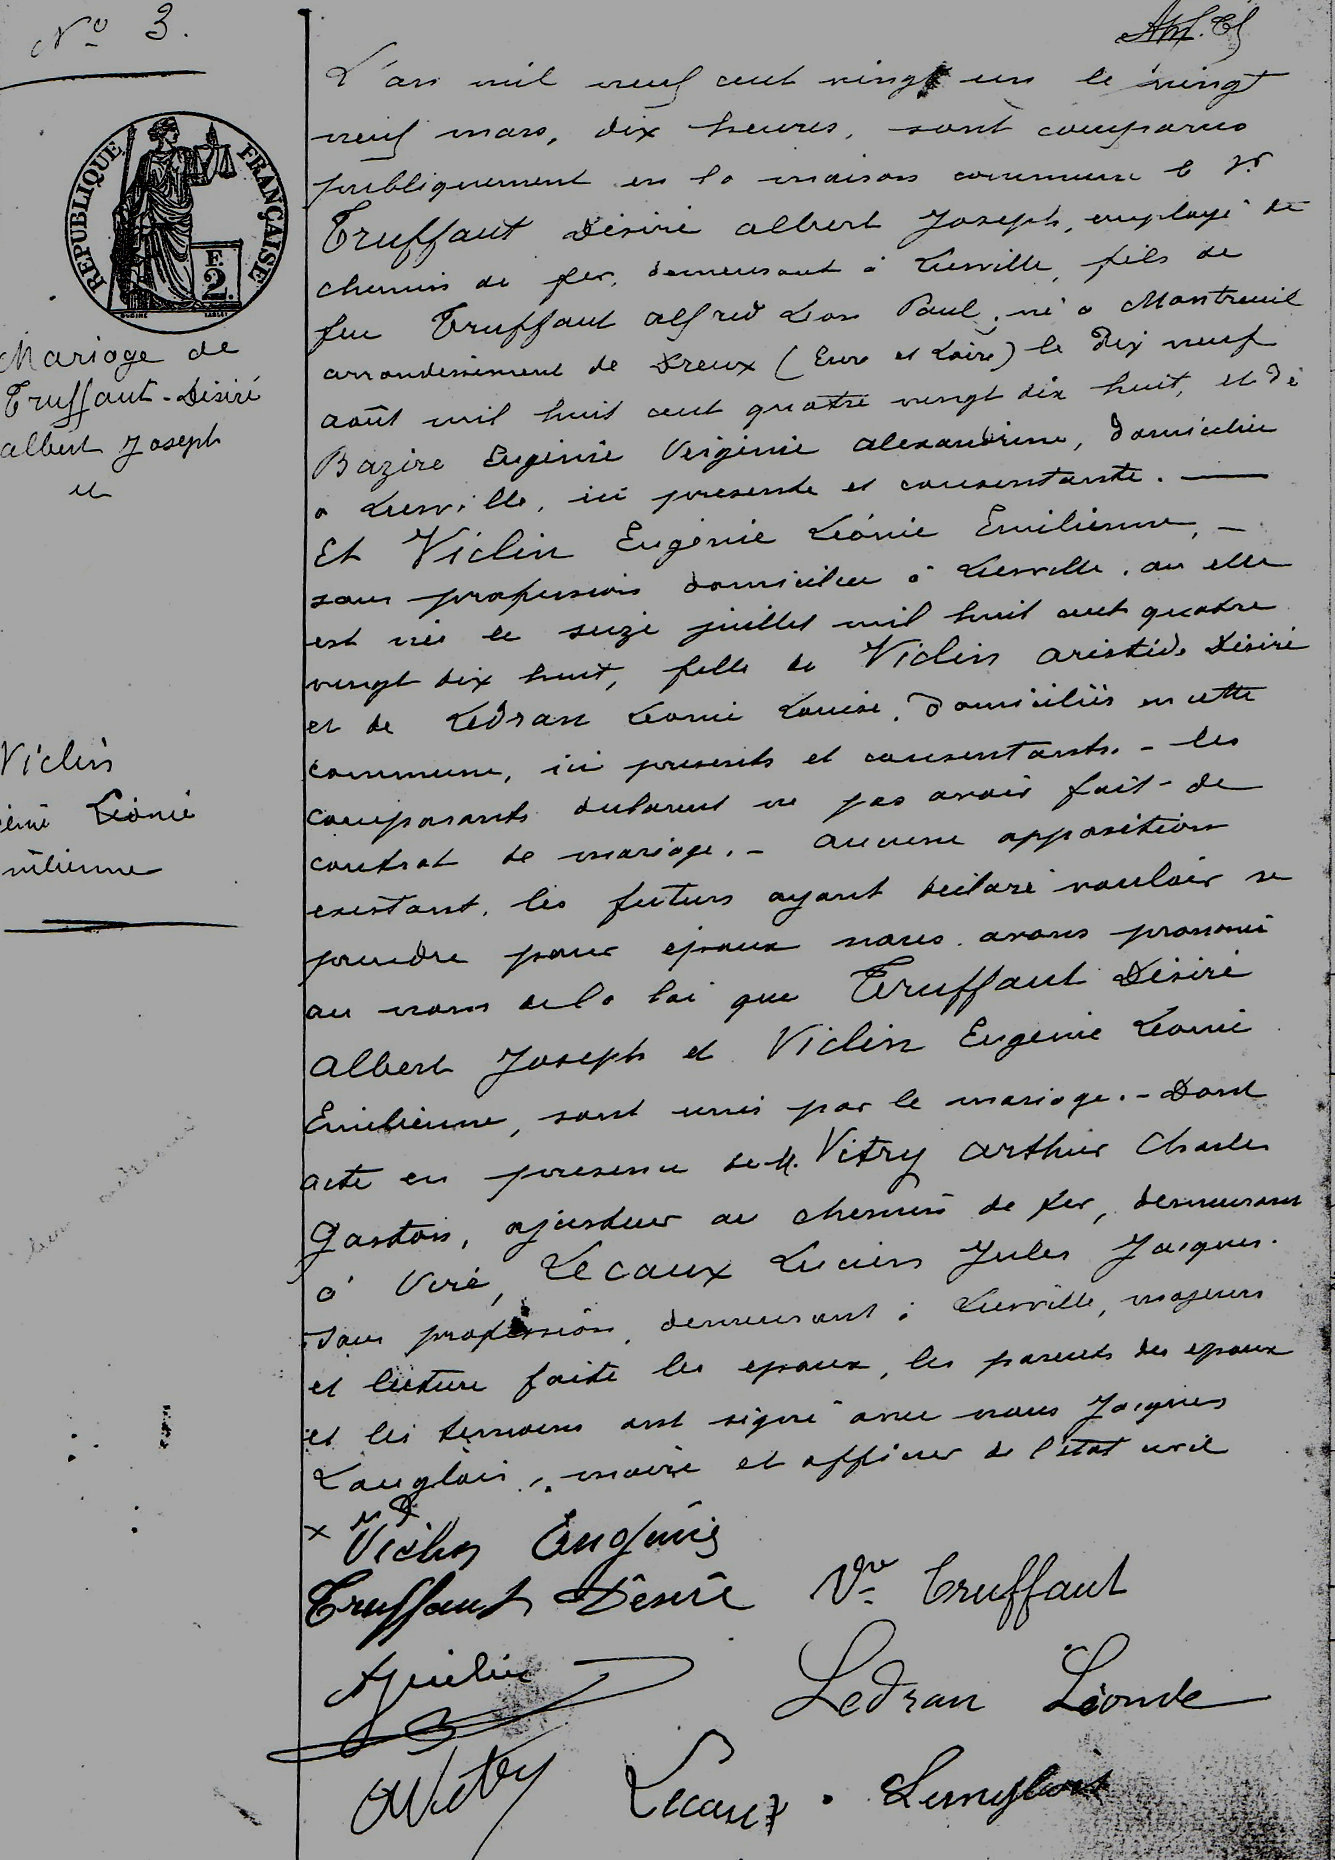 N° 3.
L'an mil neuf cent vingt un le vingt
neuf mars, dix heures, sont comparus
publiquement en la maison commune le Sr
Truffaut Désiré Albert Joseph, employé de
chemin de fer, demeurant à Lieville, fils de
feu Truffaut Alfred Léon Paul, né à Montreuil
arrondissement de Dreux (Eure et Loire) le dix neuf
août mil huit cent quatre vingt dix huit, et de
Bazire Eugénie Virginie Alexandrine, domiciliée
à Lieville, ici présente et consentante. —
Et Viclin Eugénie Léonie Emilienne, -
sans profession domiciliée à Lieville, où elle
est née le seize juillet mil huit cent quatre
vingt dix huit, fille de Viclin Aristide Désiré
et de Ledran Léonie Louise, domiciliés en cette
commune, ici présents et consentants. - les
comparants déclarent ne pas avoir fait de
contrat de mariage. - aucune opposition
existant, les futurs ayant déclaré vouloir se
prendre pour époux nous avons prononcé
au nom de la loi que Truffaut Désiré
Albert Joseph et Viclin Eugénie Léonie
Emilienne, sont unis par le mariage. - Dont
acte en présence de M. Vitry Arthur Charles
Gaston, ajusteur au chemin de fer, demeurant
à Viré, Lecaux Lucien Jules Jacques.
sans profession, demeurant à Lieville, majeurs
et lecture faite les époux, les parents des époux
et les témoins ont signé avec nous Jacques
Langlois, maire et officier de l'état civil
REPUBLIQUE FRANÇAISE
F.
2.
Mariage de
Truffaut-Désiré
Albert Joseph
et
Viclin
Léonie
x Viclin Eugénie
Truffaut Désiré Vve Truffaut
Ledran Léonie
AVitry Lecaux. Langlois